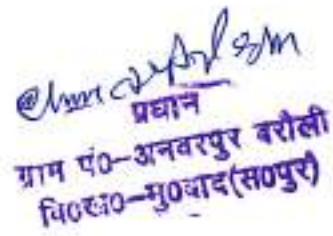 प्रधान
ग्राम पं०-अनवरपुर बरौली
वि०ख०-मु०बाद(स०पुर)